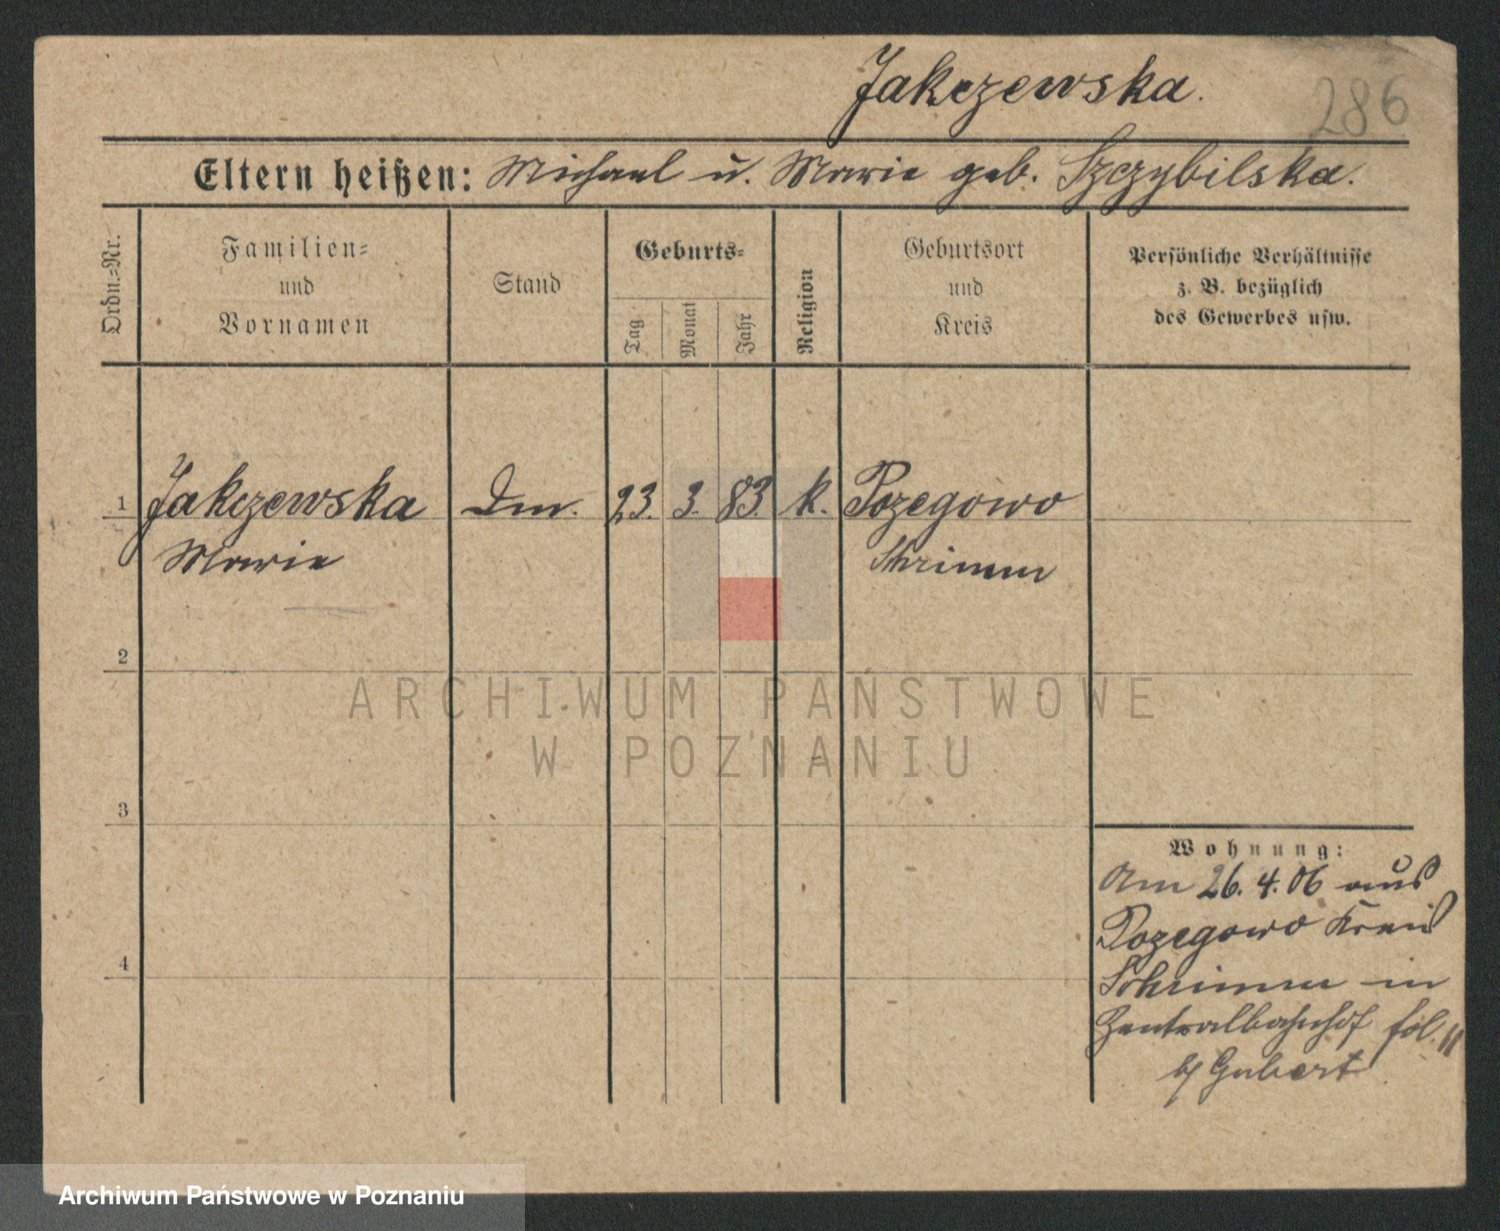 Jakczewska.
286
Eltern heißen: Michael u. Marie geb. Szczybilska.
Ordn.=Nr.
Familien=
und
Vornamen
Stand
Geburts=
Tag
Monat
Jahr
Religion
Geburtsort
und
Kreis
Persönliche Verhältnisse
z. B. bezüglich
des Gewerbes usw.
1 Jakczewska Dm. 23. 3. 83. k. Pozegowo
Marie Schrimm
2
ARCHIWUM PAŃSTWOWE
W POZNANIU
3
Wohnung:
Am 26.4.06 aus
Pozegowo Kreis
4
Schrimm in
Zentralbahnhof fol. 11
b/ Gubert
Archiwum Państwowe w Poznaniu